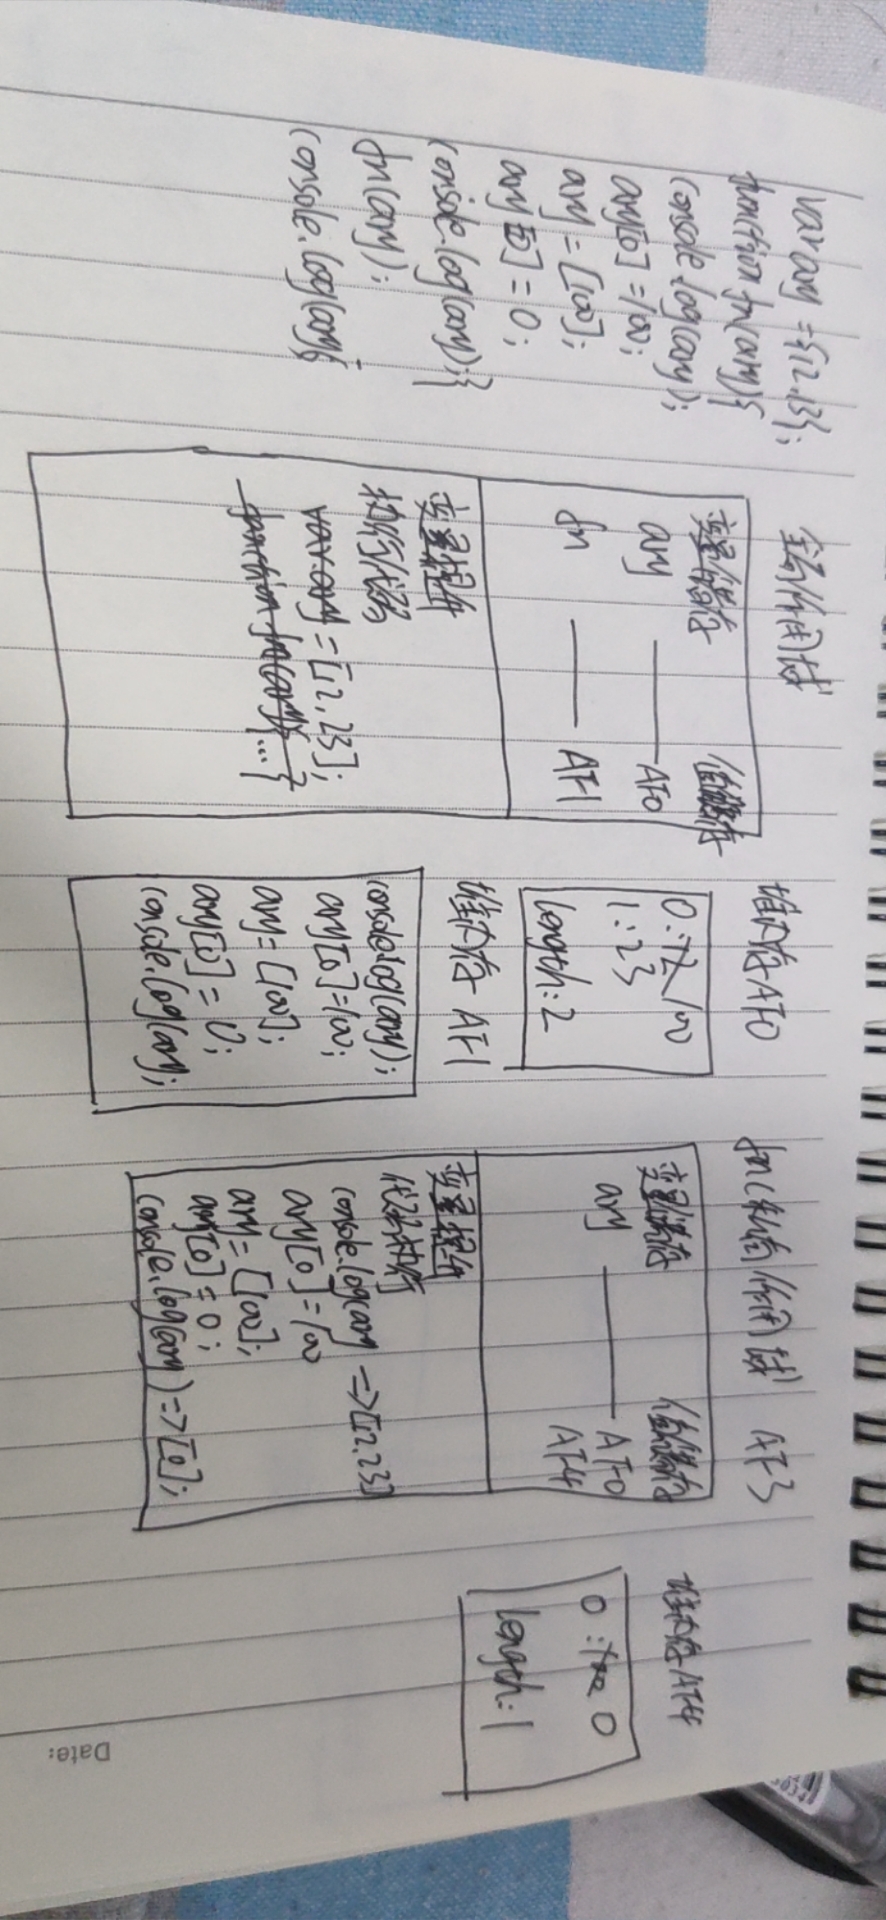 var ary = [12,23];
function fn(ary){
console.log(ary);
ary[0]=100;
ary=[100];
ary[0]=0;
console.log(ary);}
fn(ary);
console.log(ary);
全局作用域
变量储存 值储存
ary —— AF0
fn —— AF1
变量提升
执行代码
var ary=[12,23];
function fn(ary){...}
堆内存AF0
0:12 100
1:23
length:2
堆内存 AF1
console.log(ary);
ary[0]=100;
ary=[100];
ary[0]=0;
console.log(ary);
fn(私有作用域 AF3
变量储存 值储存
ary —— AF0
AF4
变量提升
代码执行
console.log(ary =>[12,23]
ary[0]=100
ary=[100];
ary[0]=0;
console.log(ary)=>[0];
堆内存AF4
0:100 0
length:1
Date: